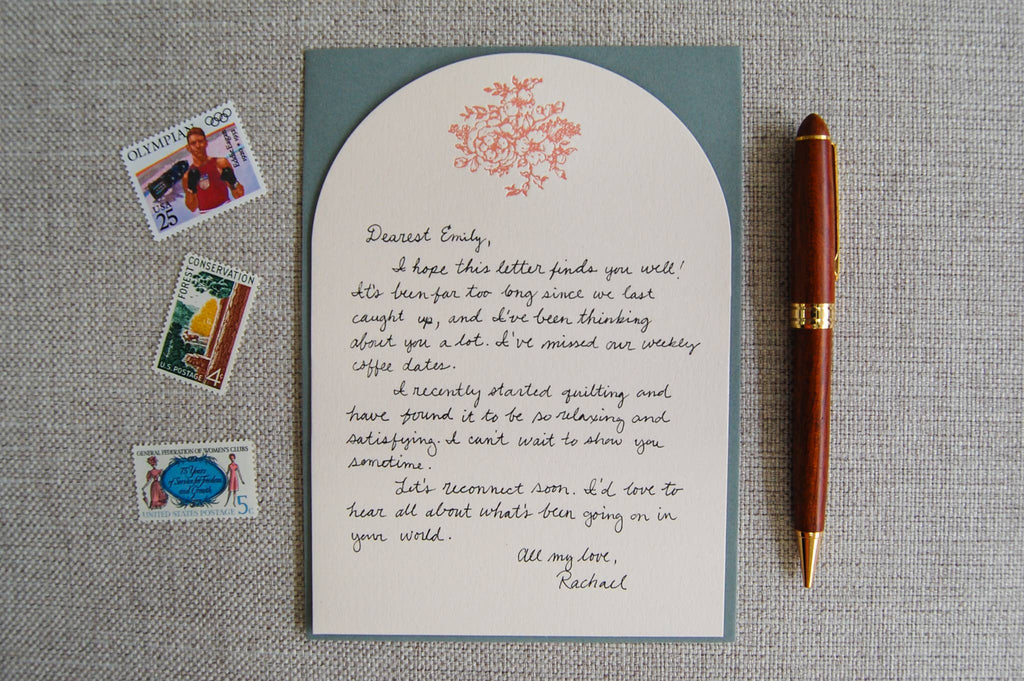 OLYMPIAN
Eddie Eagan
USA
25
FOREST CONSERVATION
U.S. POSTAGE 4¢
GENERAL FEDERATION OF WOMEN'S CLUBS
75 Years
of Service for Freedom
and Growth
UNITED STATES POSTAGE 5c
Dearest Emily,
I hope this letter finds you well!
It's been far too long since we last
caught up, and I've been thinking
about you a lot. I've missed our weekly
coffee dates.
I recently started quilting and
have found it to be so relaxing and
satisfying. I can't wait to show you
sometime.
Let's reconnect soon. I'd love to
hear all about what's been going on in
your world.
All my love,
Rachael